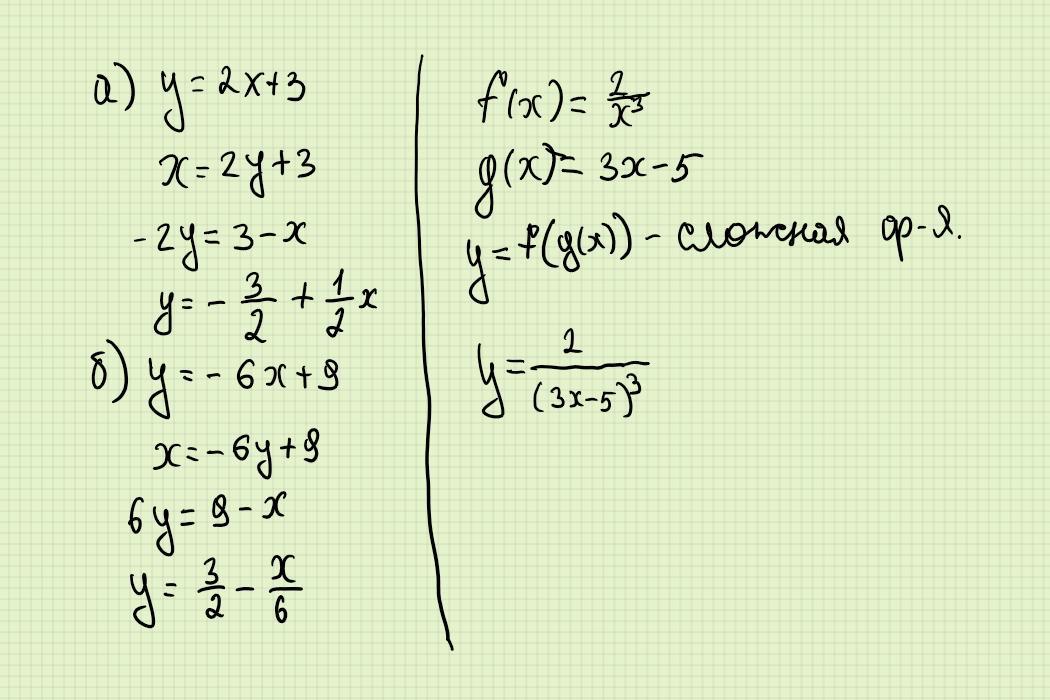 а) y = 2x+3
x = 2y+3
-2y = 3-x
y = - 3/2 + 1/2 x
б) y = - 6x+9
x = -6y+9
6y = 9-x
y = 3/2 - x/6
f(x) = 2/x³
g(x) = 3x-5
y = f(g(x)) - сложная ф-я.
y = 2/(3x-5)³